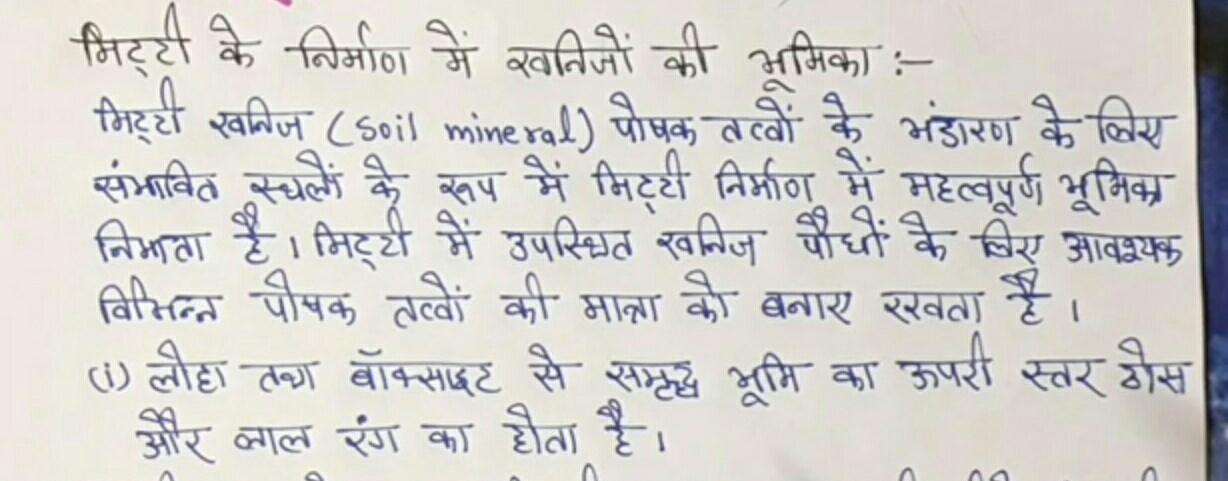 मिट्टी के निर्माण में खनिजों की भूमिका :-
मिट्टी खनिज (soil mineral) पोषक तत्वों के भंडारण के लिए
संभावित स्थलों के रूप में मिट्टी निर्माण में महत्वपूर्ण भूमिका
निभाता है। मिट्टी में उपस्थित खनिज पौधों के लिए आवश्यक
विभिन्न पोषक तत्वों की मात्रा को बनाए रखता है।
(i) लोहा तथा बॉक्साइट से समृद्ध भूमि का ऊपरी स्तर ठोस
और लाल रंग का होता है।